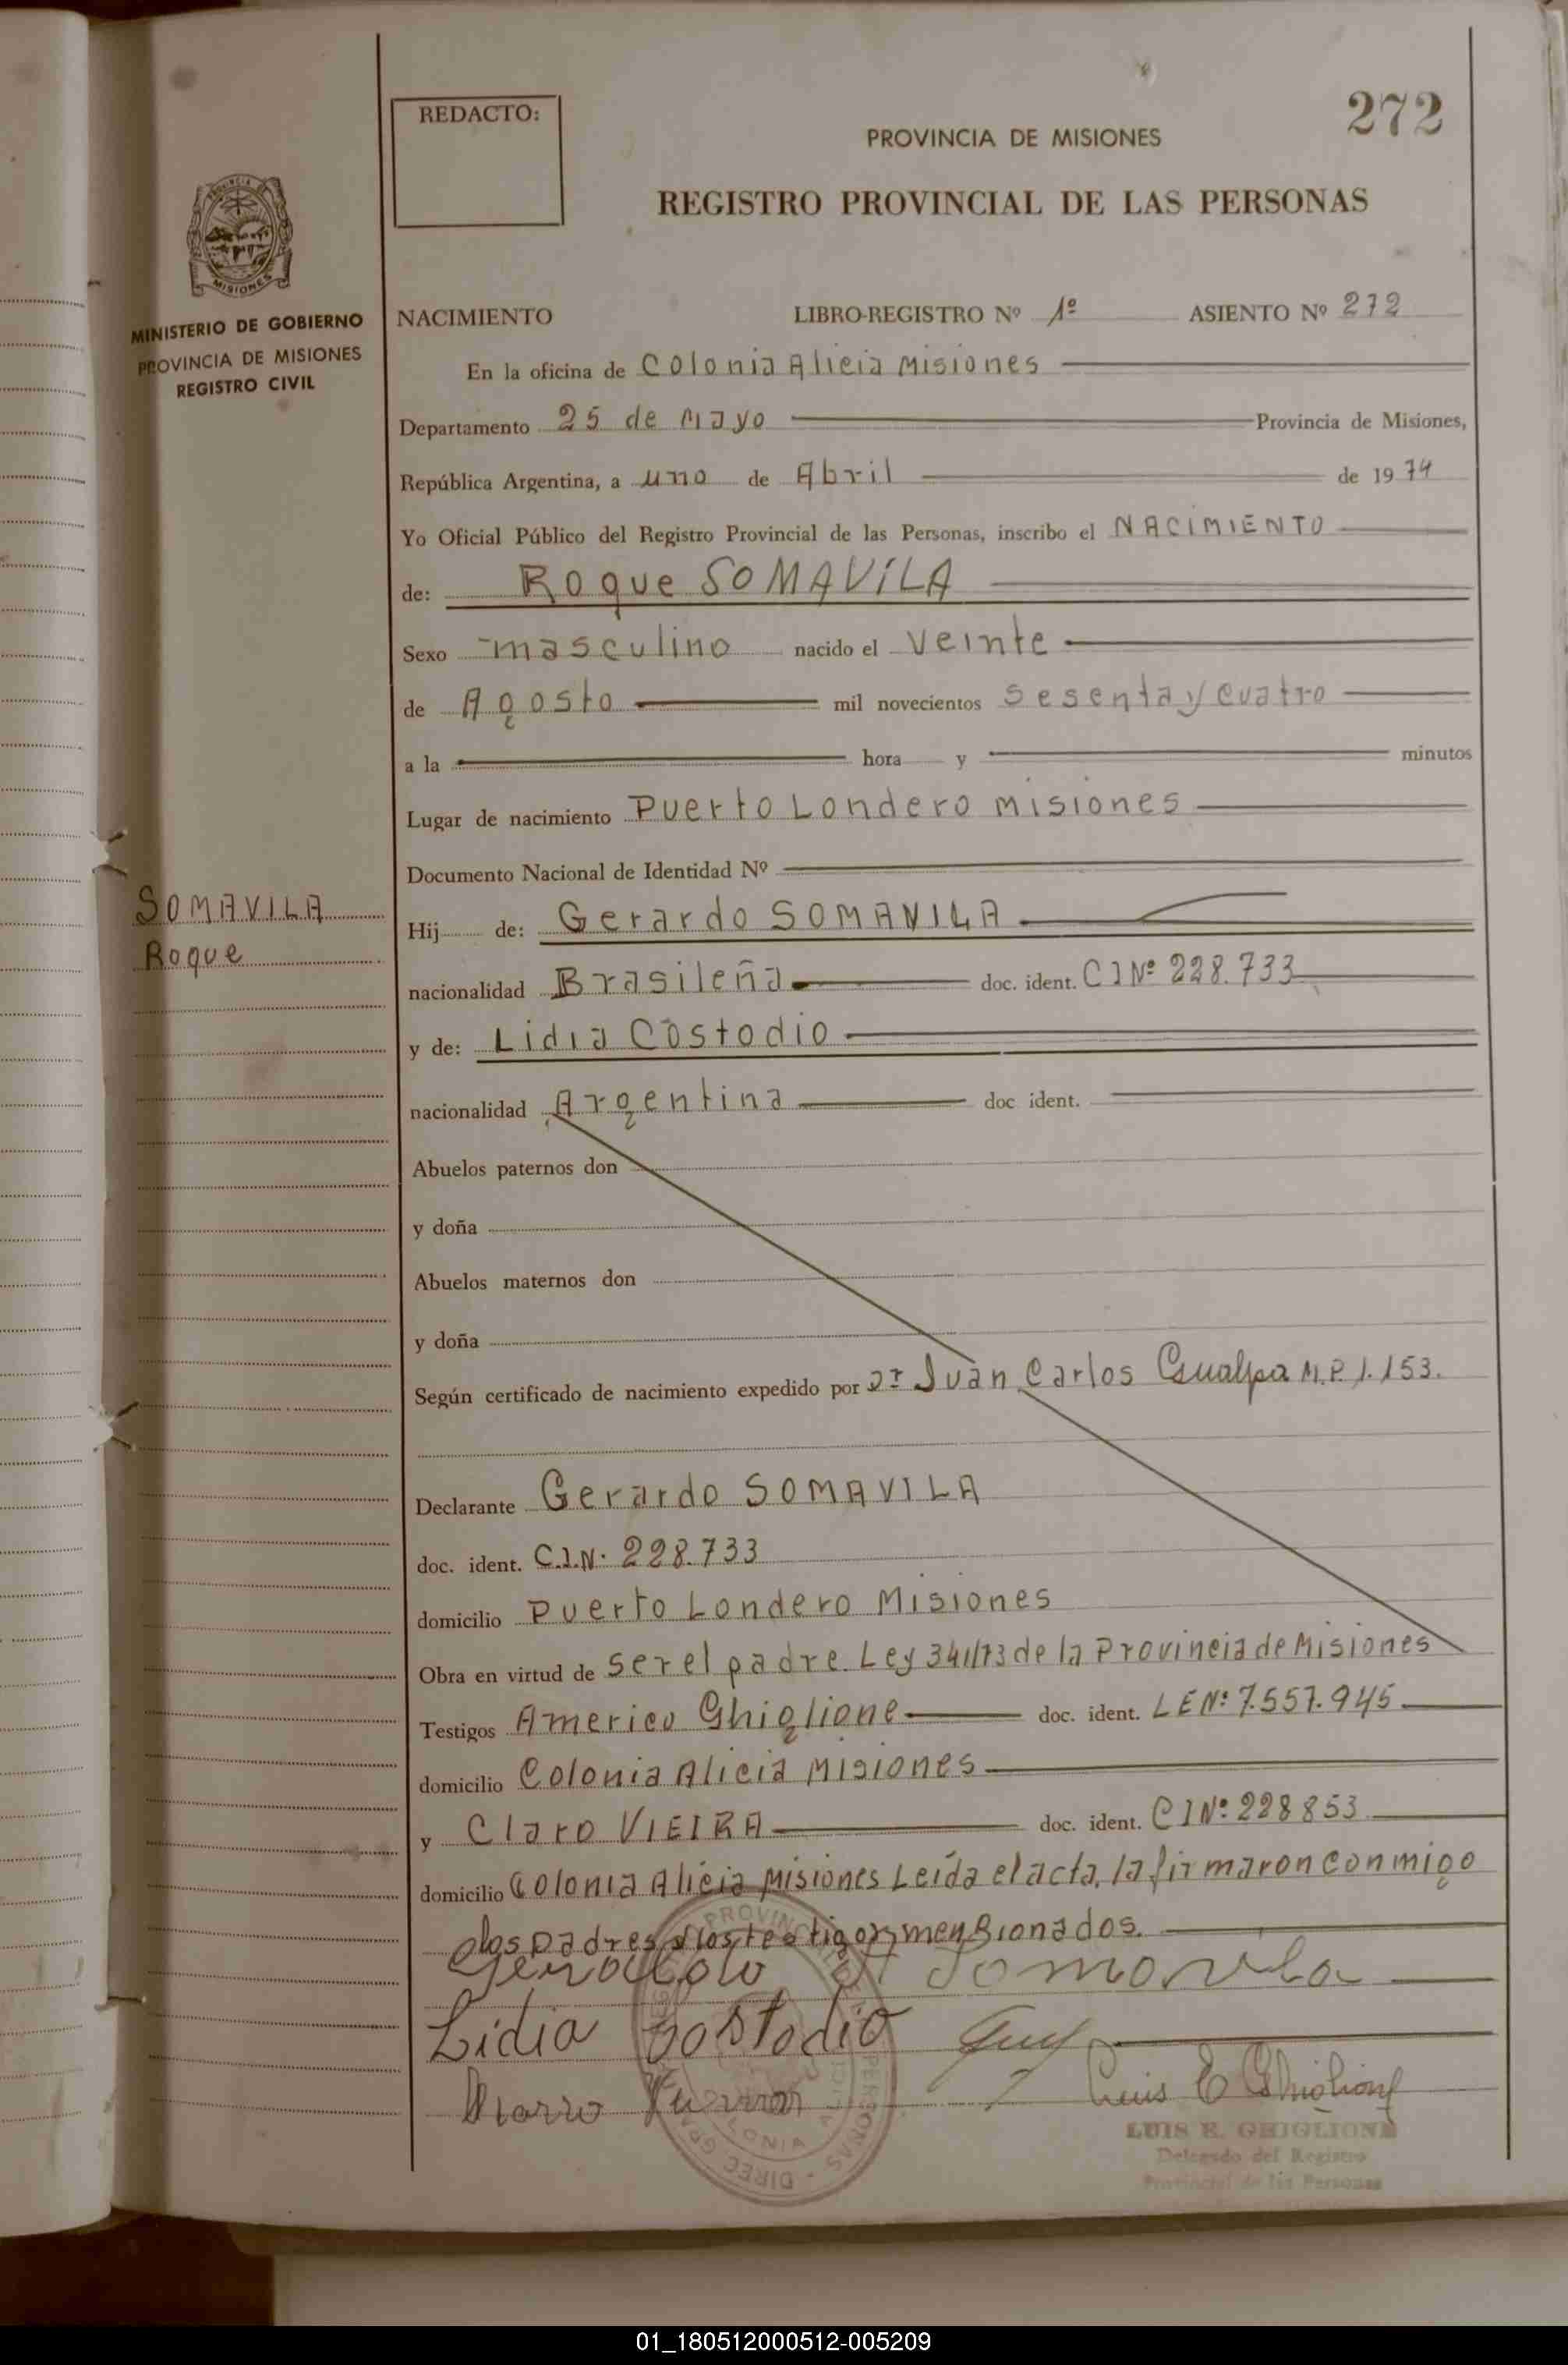 REDACTO:
272
PROVINCIA DE MISIONES
REGISTRO PROVINCIAL DE LAS PERSONAS
MISIONES
MINISTERIO DE GOBIERNO
PROVINCIA DE MISIONES
REGISTRO CIVIL
NACIMIENTO LIBRO-REGISTRO Nº 1º ASIENTO Nº 272
En la oficina de Colonia Alicia Misiones
Departamento 25 de Mayo Provincia de Misiones,
República Argentina, a uno de Abril de 1974
Yo Oficial Público del Registro Provincial de las Personas, inscribo el NACIMIENTO
de: Roque SOMAVILA
Sexo masculino nacido el veinte
de Agosto mil novecientos sesenta y cuatro
a la hora y minutos
Lugar de nacimiento Puerto Londero Misiones
Documento Nacional de Identidad Nº
SOMAVILA
Roque
Hij de: Gerardo SOMAVILA
nacionalidad Brasileña doc. ident. CI Nº 228.733
y de: Lidia Costodio
nacionalidad Argentina doc ident.
Abuelos paternos don
y doña
Abuelos maternos don
y doña
Según certificado de nacimiento expedido por Dr Juan Carlos Gualpa M.P. 1.153.
Declarante Gerardo SOMAVILA
doc. ident. C.I.N. 228.733
domicilio Puerto Londero Misiones
Obra en virtud de ser el padre. Ley 341/73 de la Provincia de Misiones
Testigos Americo Ghiglione doc. ident. LE Nº 7.557.945
domicilio Colonia Alicia Misiones
y Claro VIEIRA doc. ident. CI Nº 228853
domicilio Colonia Alicia Misiones Leída el acta, la firmaron conmigo
los padres y los testigos mensionados.
Lidia Costodio
Luis E Ghiglione
LUIS E. GHIGLIONE
Delegado del Registro
Provincial de las Personas
01_180512000512-005209